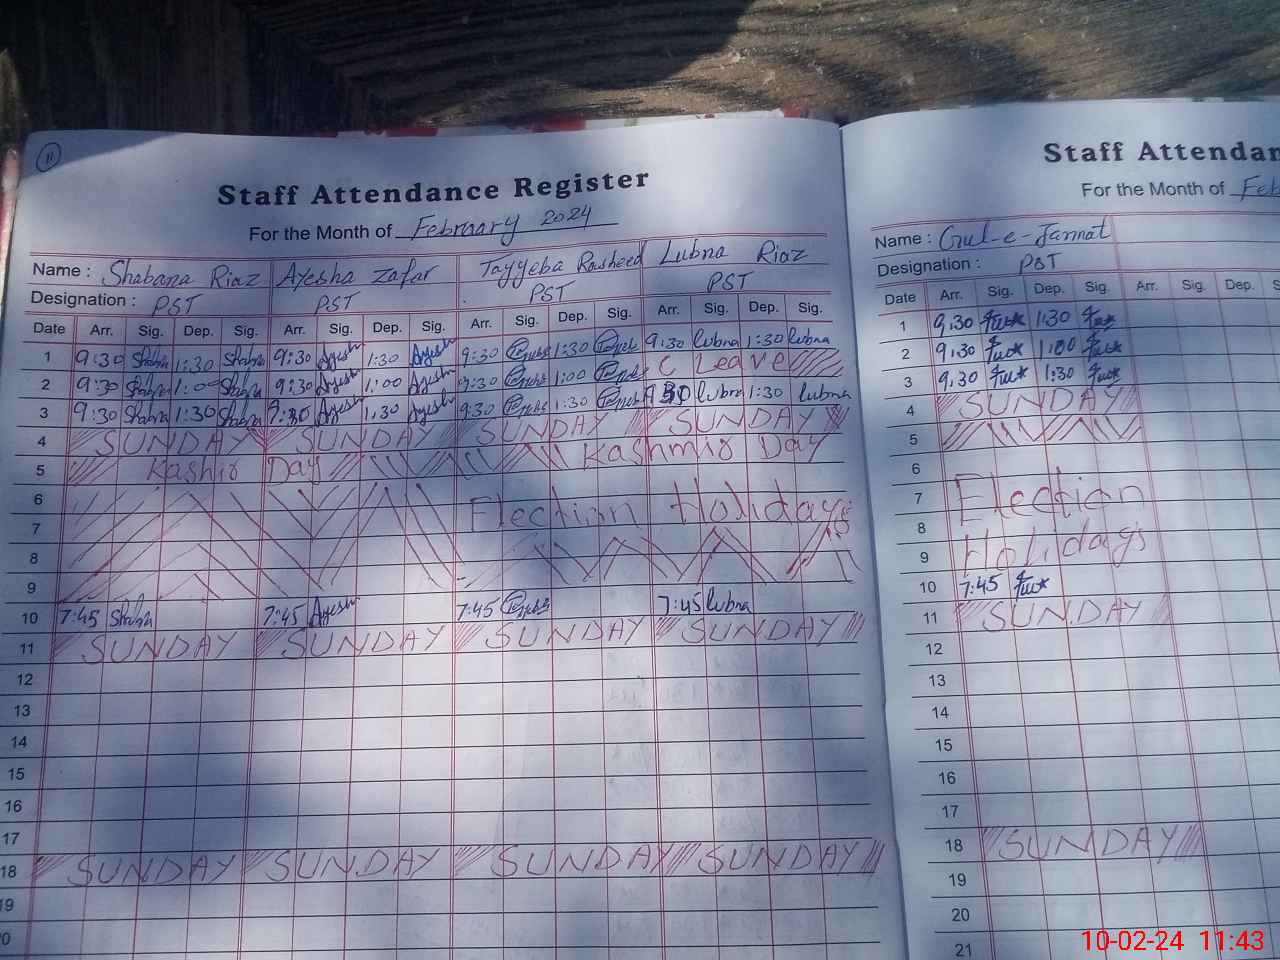 11
Staff Attendance Register
For the Month of February 2024
Name : Shabana Riaz Ayesha Zafar Tayyeba Rasheed Lubna Riaz
Designation : PST PST PST PST
Date Arr. Sig. Dep. Sig. Arr. Sig. Dep. Sig. Arr. Sig. Dep. Sig. Arr. Sig. Dep. Sig.
1 9:30 Shabna 1:30 Shabna 9:30 Ayesha 1:30 Ayesha 9:30 1:30 9:30 lubna 1:30 lubna
2 9:30 Shabna 1:00 Shabna 9:30 Ayesha 1:00 Ayesha 9:30 1:00 C Leave
3 9:30 Shabna 1:30 Shabna 9:30 Ayesha 1:30 Ayesha 9:30 1:30 lubna 1:30 lubna
4 SUNDAY SUNDAY SUNDAY SUNDAY
5 Kashir Day Kashmir Day
6
7 Election Holidays
8
9
10 7:45 Shabna 7:45 Ayesha 7:45 7:45 lubna
11 SUNDAY SUNDAY SUNDAY SUNDAY
12
13
14
15
16
17
18 SUNDAY SUNDAY SUNDAY SUNDAY
19
Staff Attendan
For the Month of Feb
Name : Gul-e-Jannat
Designation : PST
Date Arr. Sig. Dep. Sig. Arr. Sig. Dep. S
1 9:30 1:30
2 9:30 1:00
3 9:30 1:30
4 SUNDAY
5
6
7 Election
8
9 Holidays
10 7:45
11 SUNDAY
12
13
14
15
16
17
18 SUNDAY
19
20
21
10-02-24 11:43